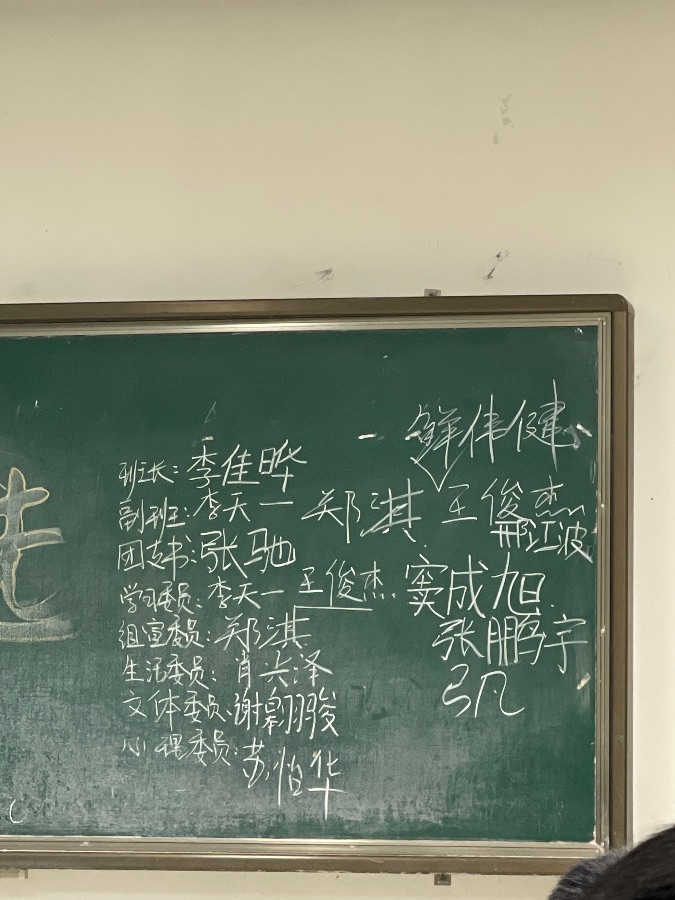 鲜伟健
班长：李佳晔
副班：李天一 郑淇 王俊杰
邢江波
团支书：张驰
学习委员：李天一 王俊杰 窦成旭
组宣委员：郑淇 张鹏宇
生活委员：肖兴泽
弓凡
文体委员：谢翱骏
心理委员：苏怡华